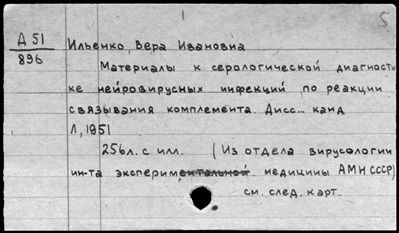 5
Д 51
896
Ильенко, Вера Ивановна
Материалы к серологической диагности
ке нейровирусных инфекций по реакции
связывания комплемента. Дисс... канд
Л, 1951
256л. с илл. (Из отдела вирусологии
ин-та экспериментальной медицины АМН СССР)
см. след. карт.